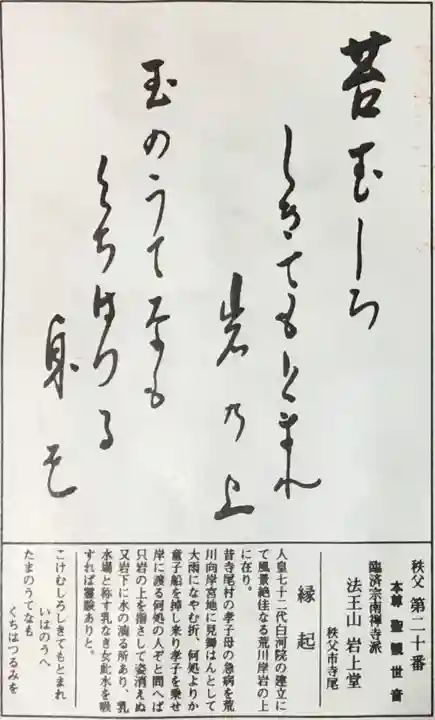 苔むしろ
しきてもとまれ
岩乃上
玉のうてなも
くちはつる
身を
秩父 第二十番
本尊 聖観世音
臨済宗南禅寺派
法王山 岩上堂
秩父市寺尾
縁起
人皇七十二代白河院の建立に
て風景絶佳なる荒川岸岩の上
に在り。
昔寺尾村の孝子母の急病を荒
川向岸宮地に見舞はんとして
大雨になやむ折、何処よりか
童子船を掉し来り孝子を乗せ
岸に渡る何処の人ぞと問へば
只岩の上を指さして姿消えぬ
又岩下に水の滴る所あり、乳
水場と称す乳なき女此水を吸
すれば霊験ありと。
こけむしろしきてもとまれ
いはのうへ
たまのうてなも
くちはつるみを